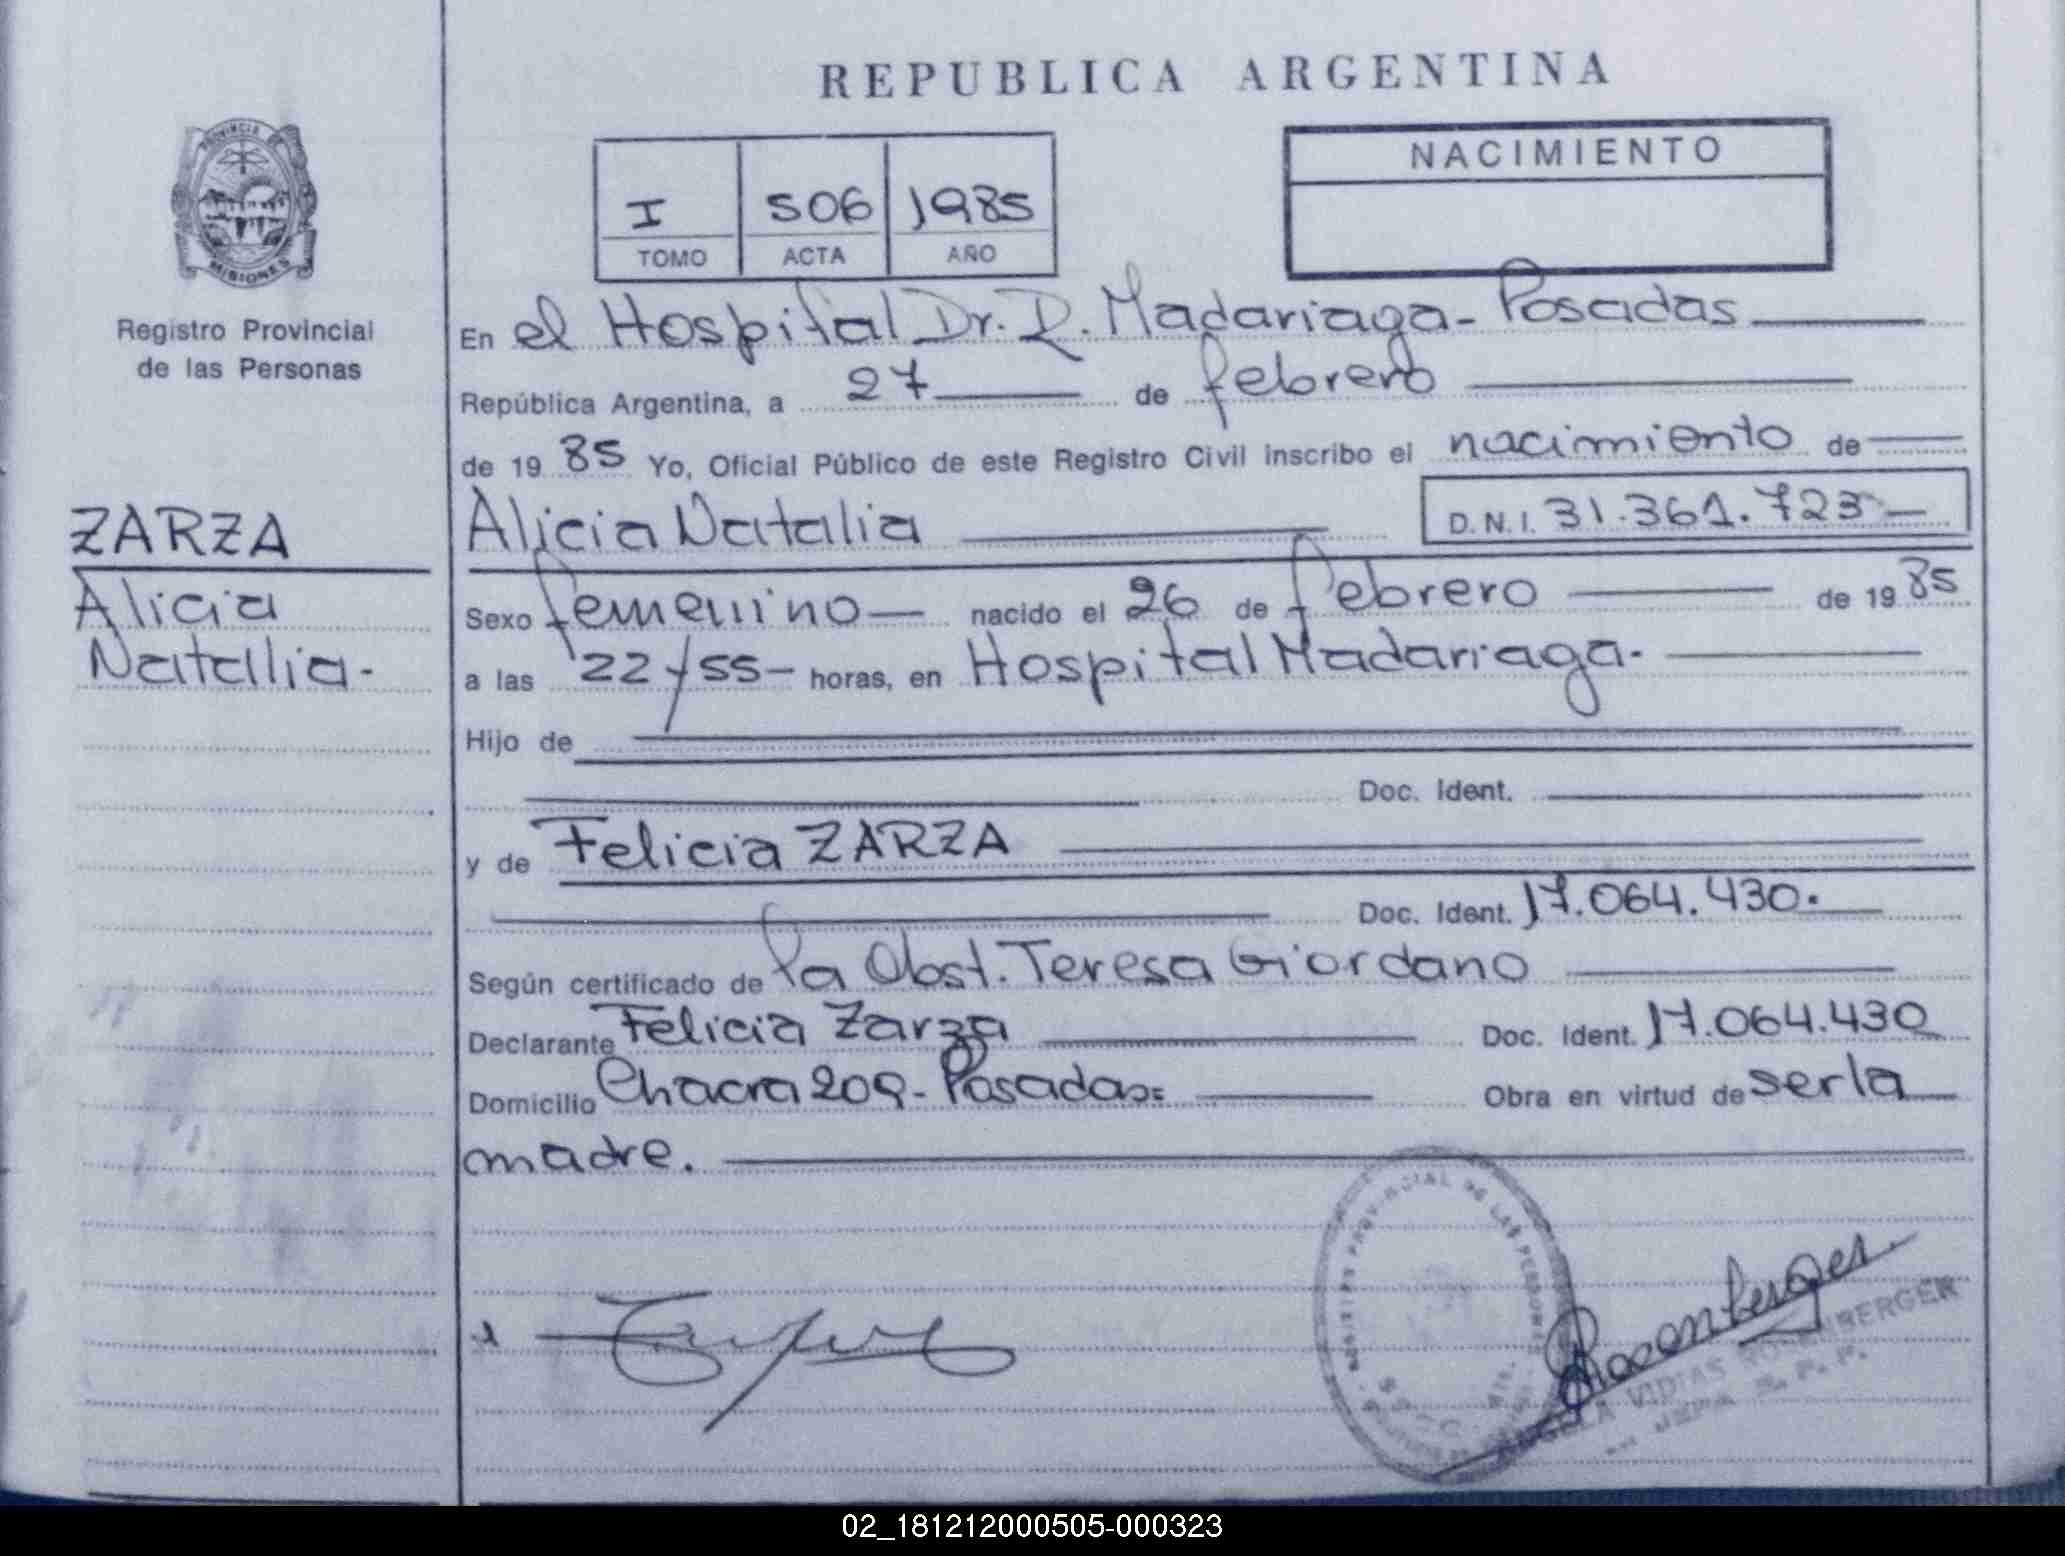 REPUBLICA ARGENTINA
PROVINCIA
MISIONES
Registro Provincial
de las Personas
I 506 1985
TOMO ACTA AÑO
NACIMIENTO
En el Hospital Dr. R. Madariaga - Posadas
República Argentina, a 27 de febrero
de 1985 Yo, Oficial Público de este Registro Civil inscribo el nacimiento de
ZARZA
Alicia
Natallia -
Alicia Natalia D.N.I. 31.361.723
Sexo femenino nacido el 26 de febrero de 1985
a las 22/55 - horas, en Hospital Madariaga.
Hijo de
Doc. Ident.
y de Felicia ZARZA
Doc. Ident. 17.064.430.
Según certificado de la Obst. Teresa Giordano
Declarante Felicia Zarza Doc. Ident. 17.064.430
Domicilio Chacra 209 - Posadas= Obra en virtud de ser la
madre.
PROVINCIAL DE LAS PERSONAS
Rosenberger
VIDIAS ROSENBERGER
02_181212000505-000323